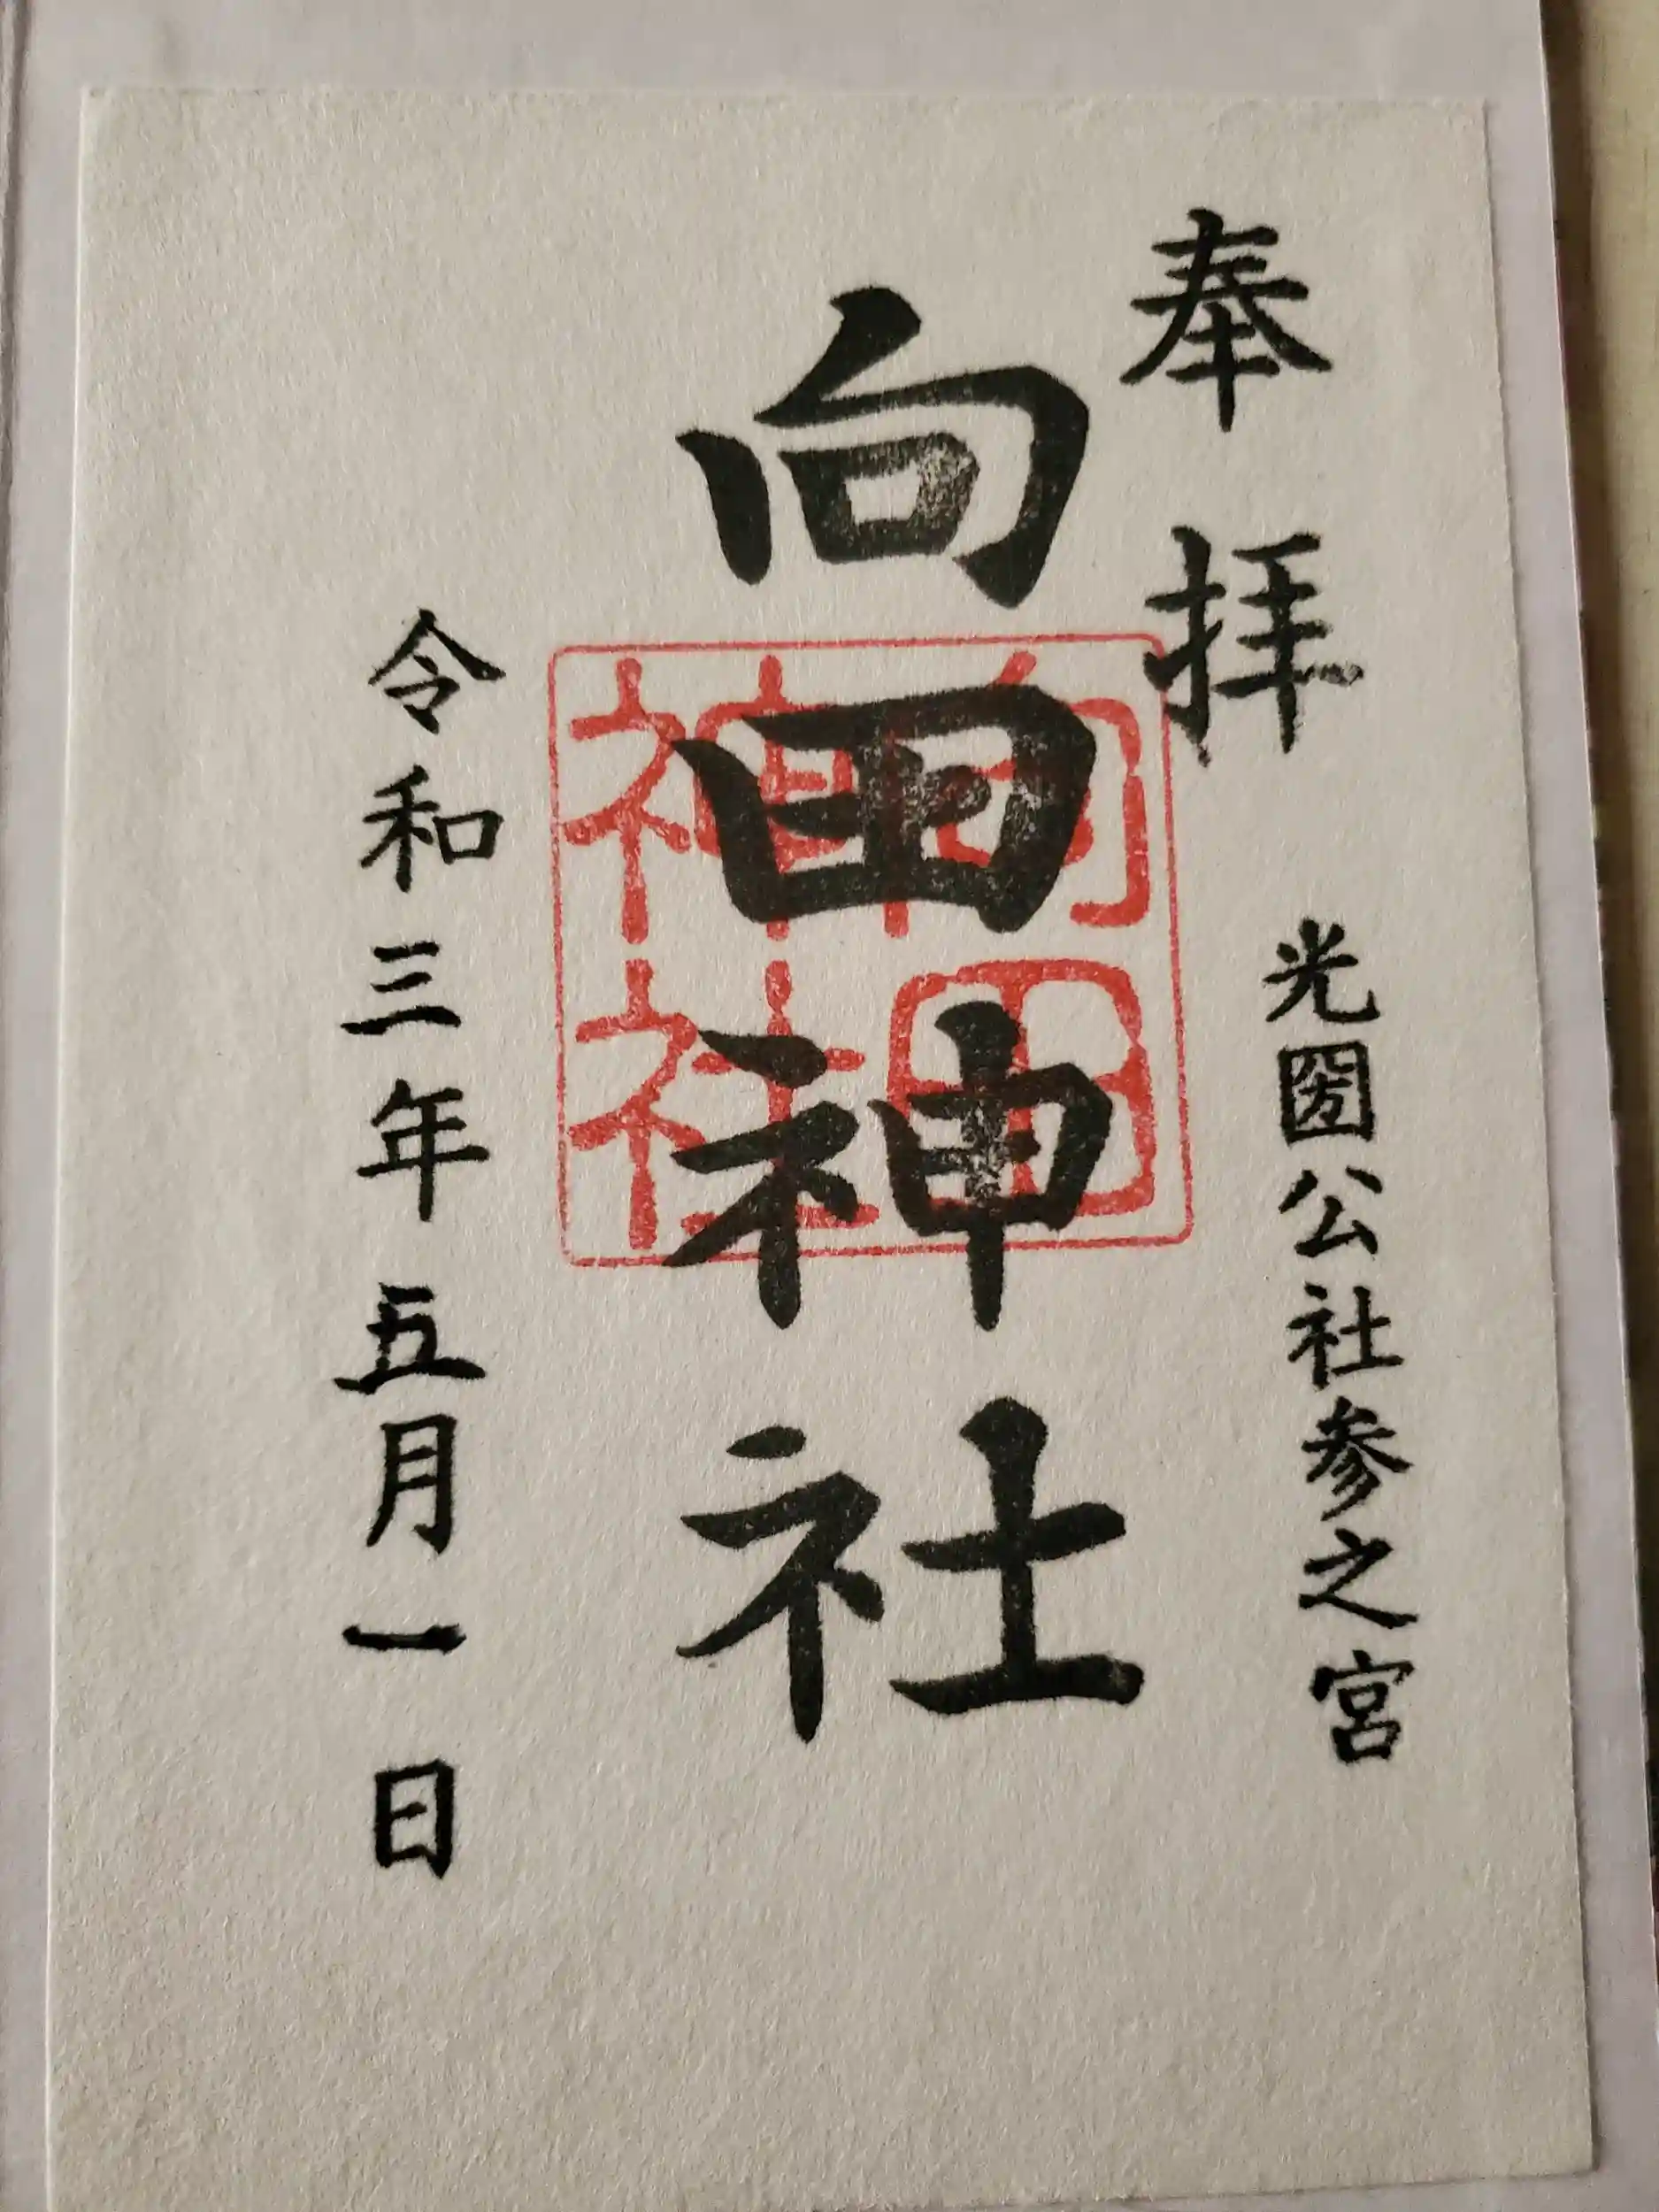 奉拝
光圀公社参之宮
向田神社
向田
神社
令和三年五月一日